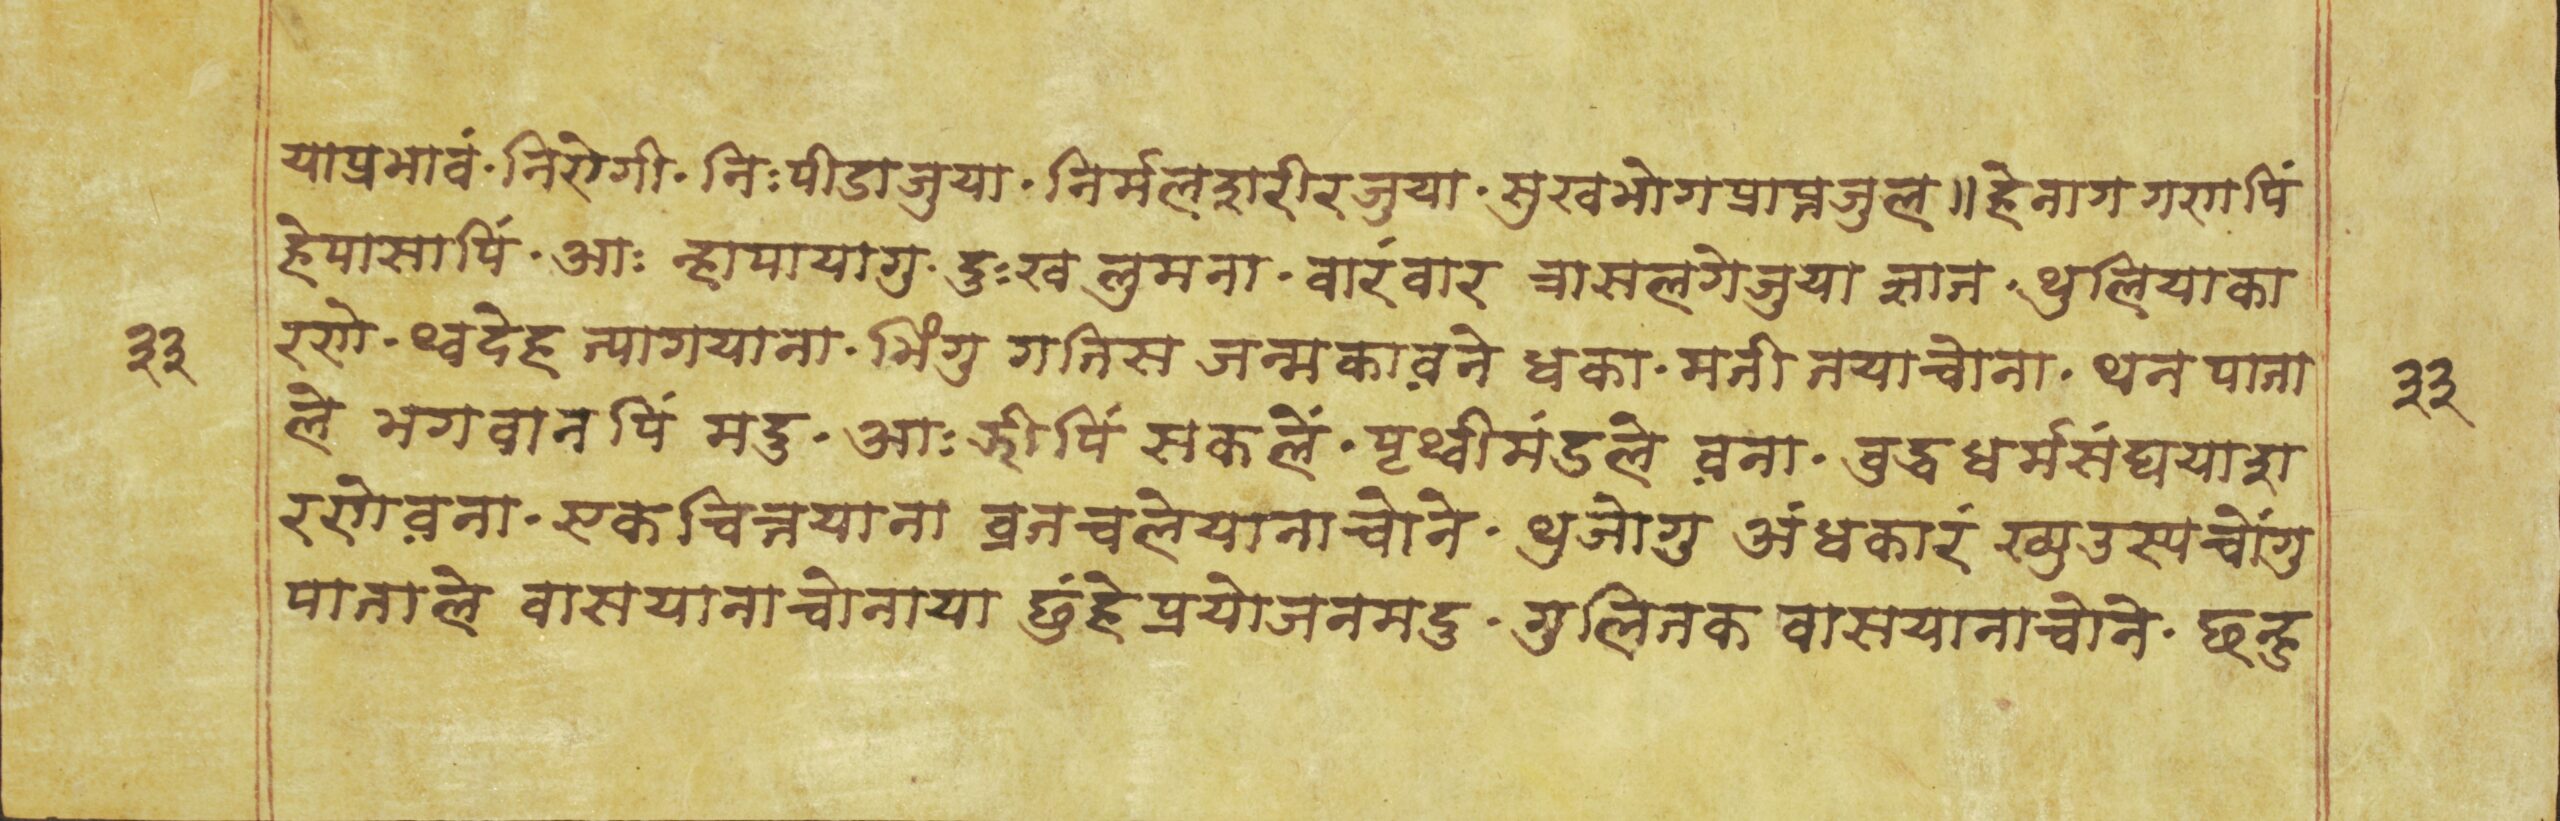 याप्रभावं· निरोगी· निःपीडाजुया· निर्मलशरीरजुया· सुखभोगप्राप्तजुल॥ हेनागगणपिं
हेपासापिं· आः न्हापायागु· दुःख लुमना· वारंवार त्रासलगेजुया जान· थुलियाका
३३ रणे· थ्वदेह त्यागयाना· भिंगु गतिस जन्मकाव़ने धका· मती तयाचोना· थन पाता ३३
ले भगवानपिं मदु· आः झीपिं सकलें· पृथ्वीमंडले व़ना· वुद्ध धर्म संघयाश
रणेव़ना· एकचित्तयाना व्रतचलेयानाचोने· थुजोगु अंधकारं खुउस्यचोंगु
पाताले वासयानाचोनाया छुंहे प्रयोजनमदु· गुलितक वासयानाचोने· छन्हु